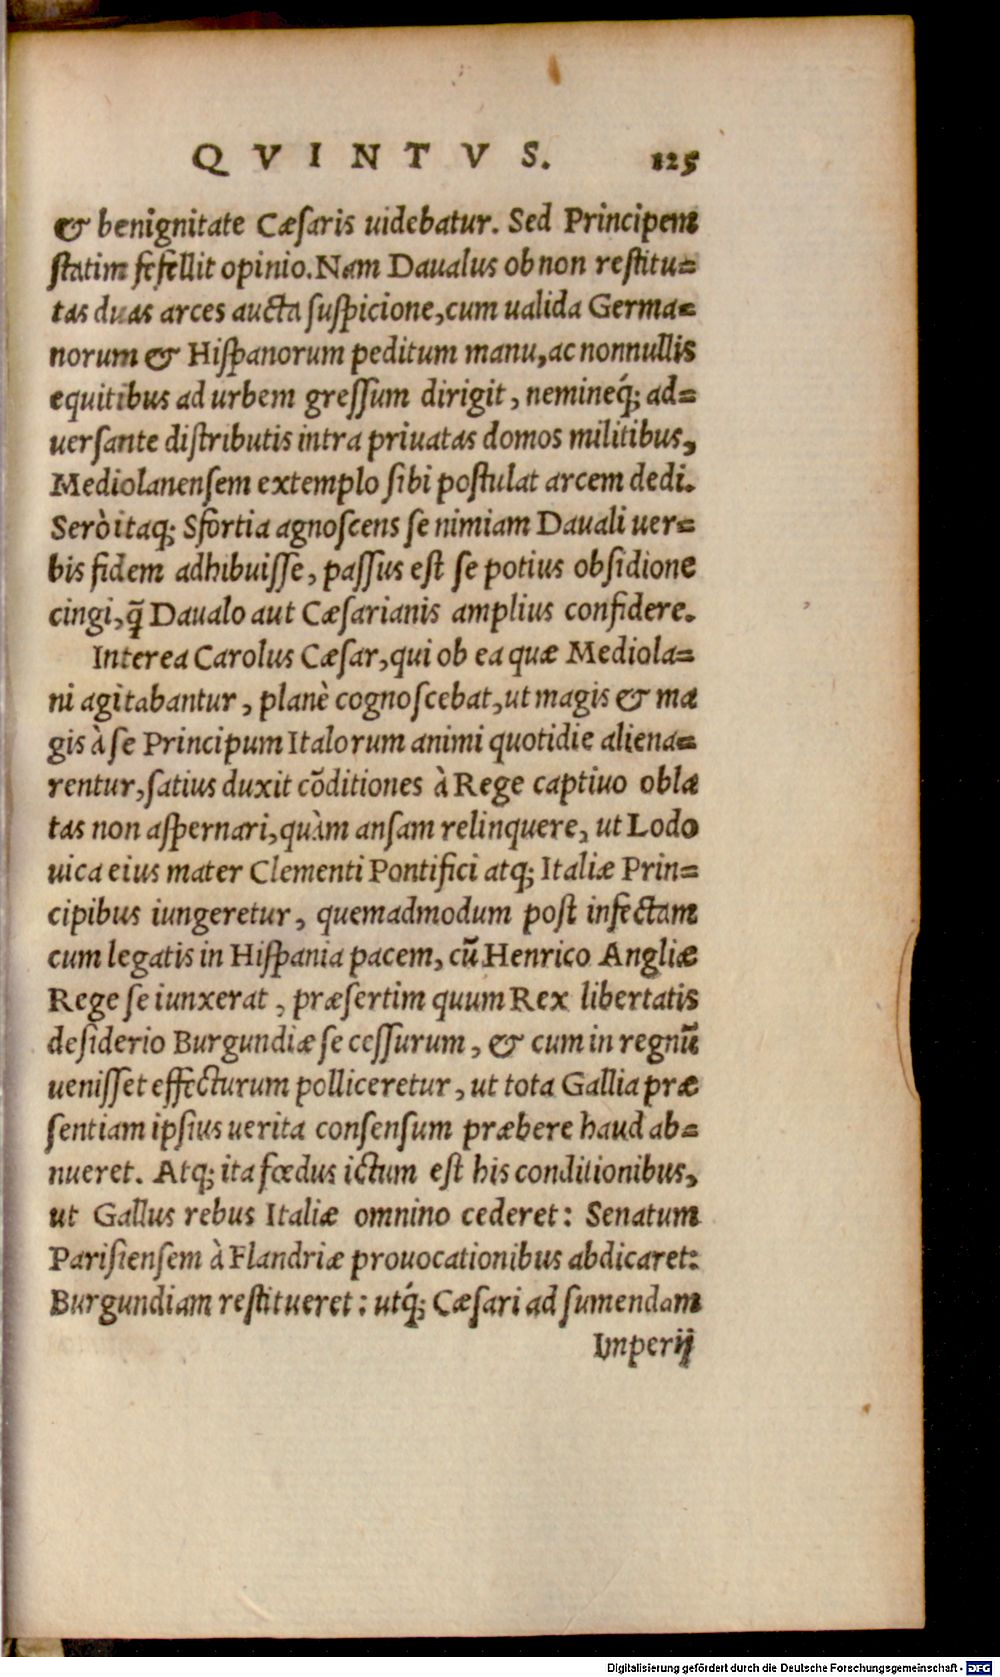 QVINTVS. 125
& benignitate Cæſaris uidebatur. Sed Principem
ſtatim fefellit opinio. Nam Daualus ob non reſtitu=
tas duas arces aucta ſuſpicione, cum ualida Germa=
norum & Hiſpanorum peditum manu, ac nonnullis
equitibus ad urbem greſſum dirigit, nemineq́; ad=
uerſante diſtributis intra priuatas domos militibus,
Mediolanenſem extemplo ſibi poſtulat arcem dedi.
Serò itaq; Sfortia agnoſcens ſe nimiam Dauali uer=
bis fidem adhibuiſſe, paſſus eſt ſe potius obſidione
cingi, q̃ Daualo aut Cæſarianis amplius confidere.
Interea Carolus Cæſar, qui ob ea quæ Mediola=
ni agitabantur, planè cognoſcebat, ut magis & ma
gis à ſe Principum Italorum animi quotidie aliena=
rentur, ſatius duxit cõditiones à Rege captiuo obla
tas non aſpernari, quàm anſam relinquere, ut Lodo
uica eius mater Clementi Pontifici atq; Italiæ Prin=
cipibus iungeretur, quemadmodum poſt infectam
cum legatis in Hiſpania pacem, cũ Henrico Angliæ
Rege ſe iunxerat, præſertim quum Rex libertatis
deſiderio Burgundiæ ſe ceſſurum, & cum in regnũ
ueniſſet effecturum polliceretur, ut tota Gallia præ
ſentiam ipſius uerita conſenſum præbere haud ab=
nueret. Atq; ita fœdus ictum eſt his conditionibus,
ut Gallus rebus Italiæ omnino cederet: Senatum
Pariſienſem à Flandriæ prouocationibus abdicaret:
Burgundiam reſtitueret: utq́; Cæſari ad ſumendam
Imperij
Digitalisierung gefördert durch die Deutsche Forschungsgemeinschaft - DFG